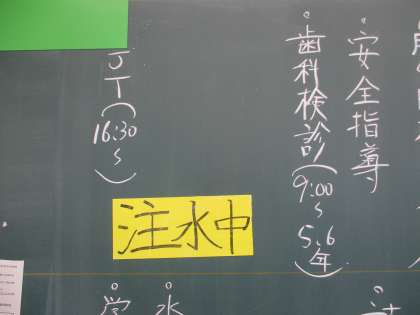 安全指導
歯科検診(9:00～
5.6年)
JT(16:30
～)
注水中
水
学